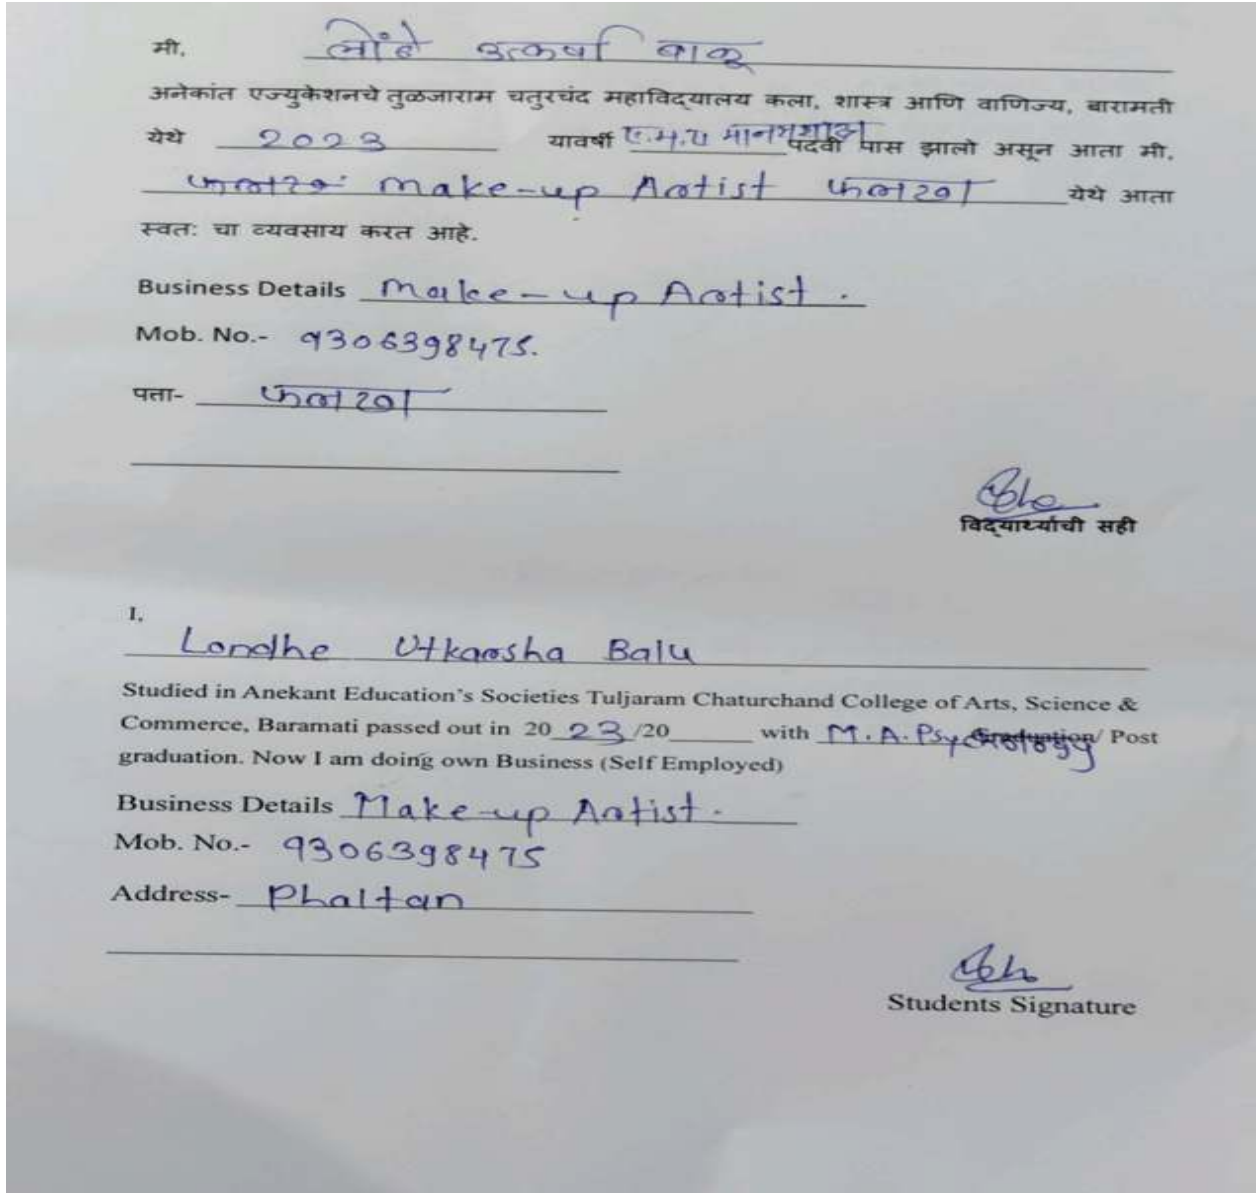 मी. लोंढे उत्कर्षा बाळू
अनेकांत एज्युकेशनचे तुळजाराम चतुरचंद महाविद्यालय कला, शास्त्र आणि वाणिज्य, बारामती
येथे २०२३ यावर्षी एम.ए मानसशास्त्र पदवी पास झालो असून आता मी.
फलटण make-up Artist फलटण येथे आता
स्वतः चा व्यवसाय करत आहे.
Business Details Make-up Artist.
Mob. No.- 9306398475.
पत्ता- फलटण
विद्यार्थ्याची सही
I,
Londhe Utkarsha Balu
Studied in Anekant Education's Societies Tuljaram Chaturchand College of Arts, Science &
Commerce, Baramati passed out in 20 23 /20 with M.A.Psychology Graduation/ Post
graduation. Now I am doing own Business (Self Employed)
Business Details Make-up Artist.
Mob. No.- 9306398475
Address- Phaltan
Students Signature